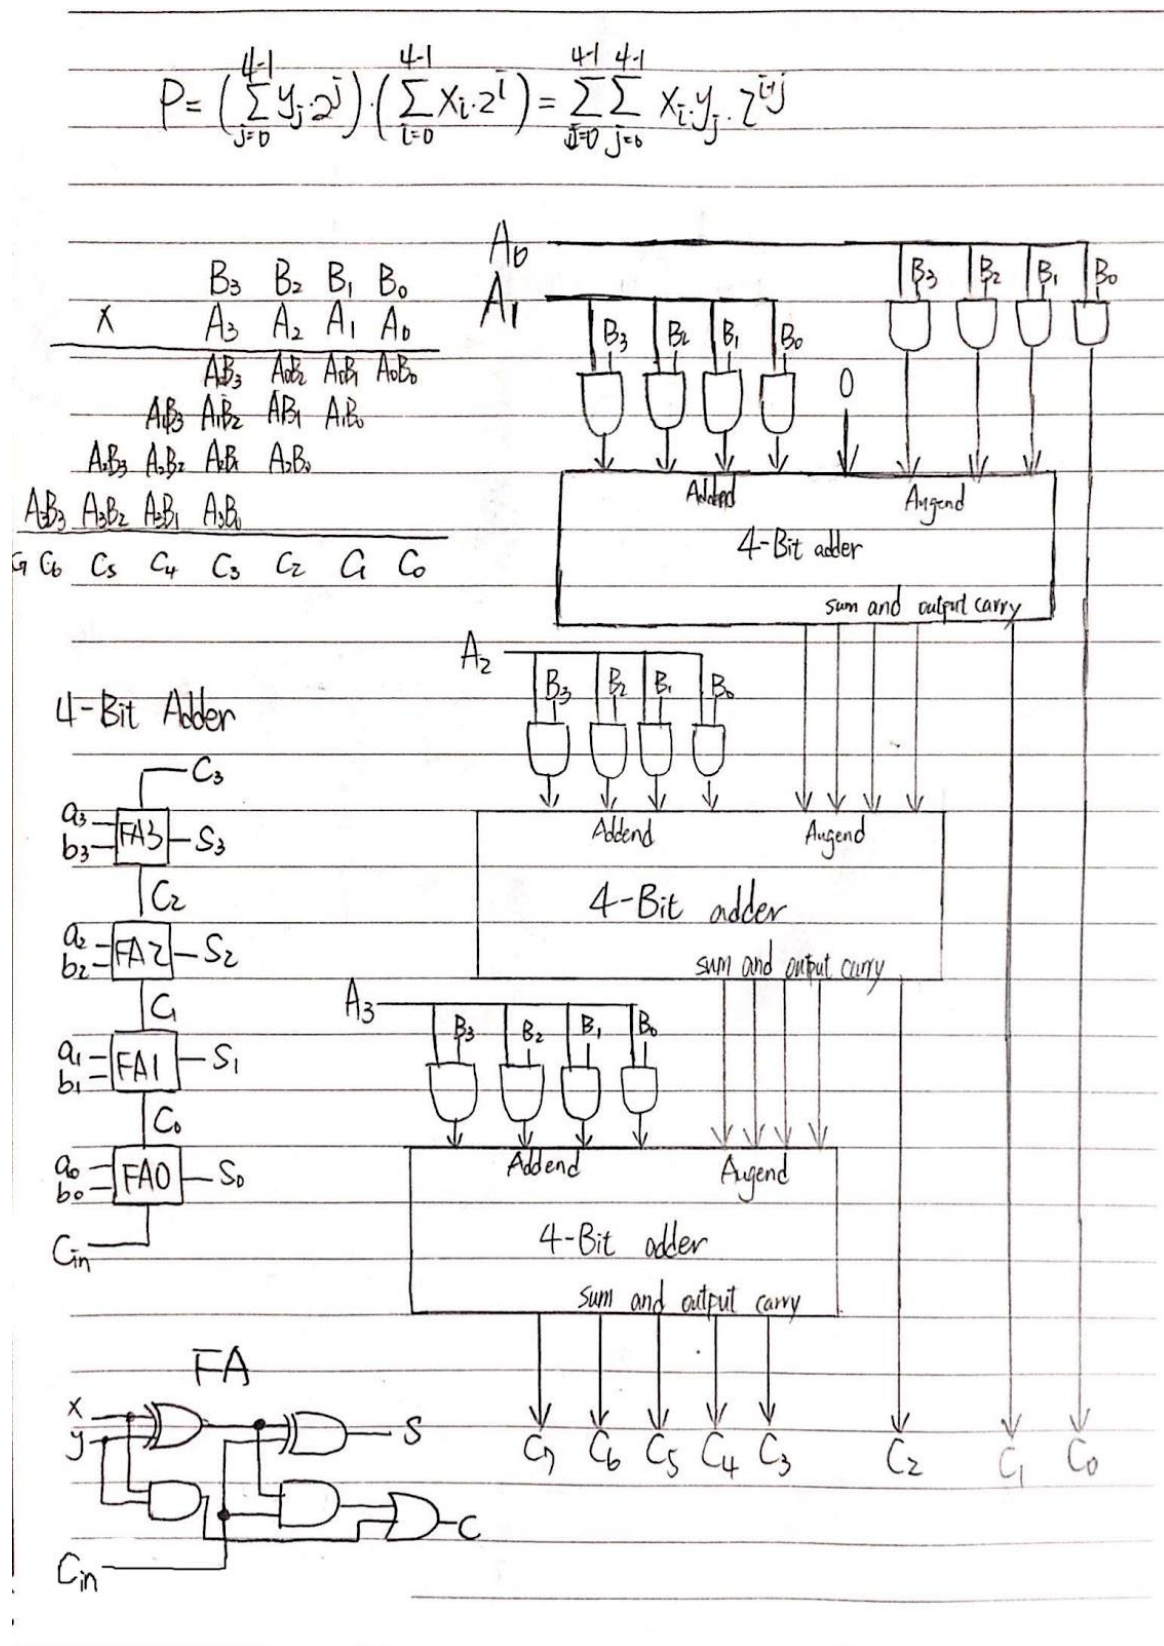 P = (∑_{j=0}^{4-1} y_j·2^j)·(∑_{i=0}^{4-1} x_i·2^i) = ∑_{i=0}^{4-1}∑_{j=0}^{4-1} x_i·y_j·2^{i+j}
B₃ B₂ B₁ B₀
X A₃ A₂ A₁ A₀
A₀B₃ A₀B₂ A₀B₁ A₀B₀
A₁B₃ A₁B₂ A₁B₁ A₁B₀
A₂B₃ A₂B₂ A₂B₁ A₂B₀
A₃B₃ A₃B₂ A₃B₁ A₃B₀
C₇ C₆ C₅ C₄ C₃ C₂ C₁ C₀
A₀
B₃ B₂ B₁ B₀
A₁
B₃ B₂ B₁ B₀
0
Addend Augend
4-Bit adder
sum and output carry
A₂
B₃ B₂ B₁ B₀
Addend Augend
4-Bit adder
sum and output carry
A₃
B₃ B₂ B₁ B₀
Addend Augend
4-Bit adder
sum and output carry
C₇ C₆ C₅ C₄ C₃ C₂ C₁ C₀
4-Bit Adder
C₃
a₃
b₃ FA3 S₃
C₂
a₂
b₂ FA2 S₂
C₁
a₁
b₁ FA1 S₁
C₀
a₀
b₀ FA0 S₀
Cin
FA
x
y
S
C
Cin